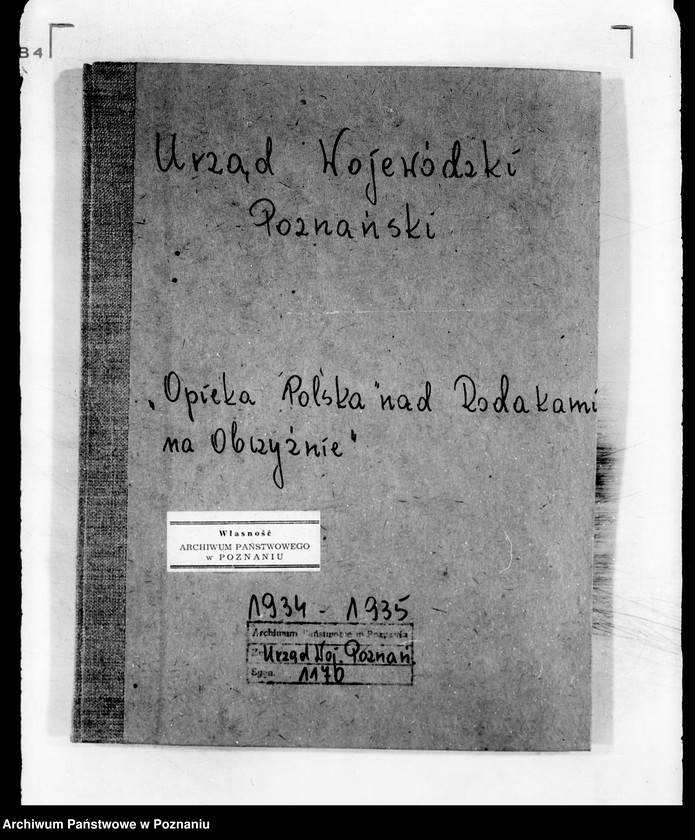 84
Urząd Wojewódzki
Poznański
„Opieka Polska "nad Rodakami
na Obczyźnie"
Własność
ARCHIWUM PAŃSTWOWEGO
w POZNANIU
1934 - 1935
Archiwum Państwowe w Poznaniu
Urząd Woj. Poznań
Sygn. 1170
Archiwum Państwowe w Poznaniu